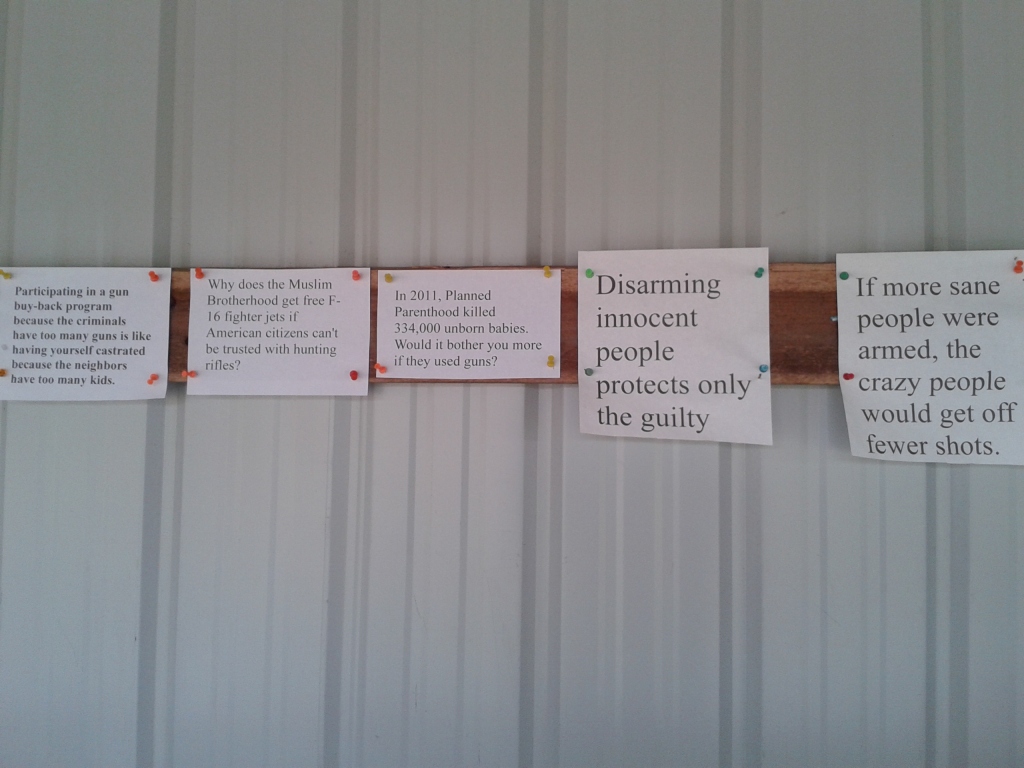 Participating in a gun
buy-back program
because the criminals
have too many guns is like
having yourself castrated
because the neighbors
have too many kids.
Why does the Muslim
Brotherhood get free F-
16 fighter jets if
American citizens can't
be trusted with hunting
rifles?
In 2011, Planned
Parenthood killed
334,000 unborn babies.
Would it bother you more
if they used guns?
Disarming
innocent
people
protects only
the guilty
If more sane
people were
armed, the
crazy people
would get off
fewer shots.